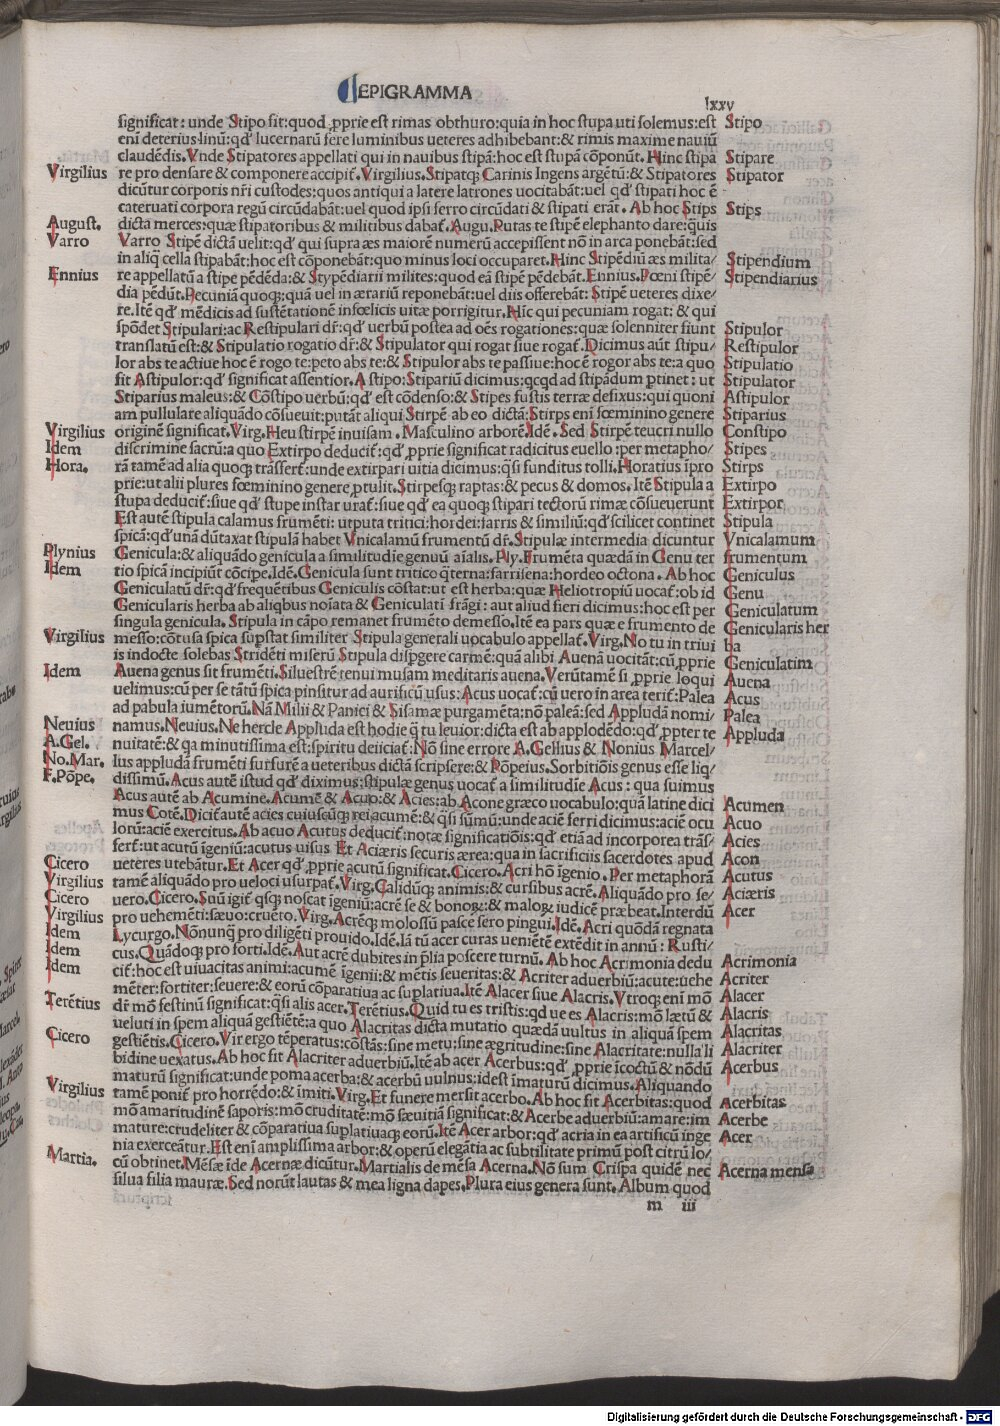 EPIGRAMMA
lxxv
significat: unde Stipo sit: quod ꝓprie est rimas obthuro: quia in hoc stupa uti solemus: est Stipo
eni deterius linū: qd' lucernarū fere luminibus ueteres adhibebant: & rimis maxime nauiū
claudēdis. Vnde Stipatores appellati qui in nauibus stipā: hoc est stupā cōponūt. Hinc stipa Stipare
Virgilius re pro densare & componere accipit̃. Virgilius. Stipatq; Carinis Ingens argētū: & Stipatores Stipator
dicūtur corporis nr̃i custodes: quos antiqui a latere latrones uocitabāt: uel qd' stipati hoc ē
cateruati corpora regū circūdabāt: uel quod ipsi ferro circūdati & stipati erāt. Ab hoc Stips Stips
August. dicta merces: quæ stipatoribus & militibus dabat̃. Augu. Putas te stipē elephanto dare: q̃uis
Varro Varro Stipē dictā uelit: qd' qui supra æs maiorē numerū accepissent nō in arca ponebāt: sed
in aliq̃ cella stipabāt: hoc est cōponebāt: quo minus loci occuparet. Hinc Stipēdiū æs milita/ Stipendium
Ennius re appellatū a stipe pēdēda: & Stypēdiarii milites: quod eā stipē pēdebāt. Ennius. Pœni stipē/ Stipendiarius
dia pēdūt. Pecuniā quoq;: quā uel in ærariū reponebāt: uel diis offerebāt: Stipē ueteres dixe/
re. Itē qd' mēdicis ad sustētationē infœlicis uitæ porrigitur. Hīc qui pecuniam rogat: & qui
spōdet Stipulari: ac Restipulari dr̃: qd' uerbū postea ad oēs rogationes: quæ solenniter fiunt Stipulor
translatū est: & Stipulatio rogatio dr̃: & Stipulator qui rogat siue rogat̃. Dicimus aūt stipu/ Restipulor
lor abs te actiue hoc ē rogo te: peto abs te: & Stipulor abs te passiue: hoc ē rogor abs te: a quo Stipulatio
fit Astipulor: qd' significat assentior. A stipo: Stipariū dicimus: qcqd ad stipādum ꝑtinet: ut Stipulator
Stiparius maleus: & Cōstipo uerbū: qd' est cōdenso: & Stipes fustis terræ defixus: qui quoni Astipulor
am pullulare aliquādo cōsueuit: putāt aliqui Stirpē ab eo dictā: Stirps eni fœminino genere Stiparius
Virgilius originē significat. Virg. Heu stirpē inuisam. Masculino arborē. Idē. Sed Stirpē teucri nullo Constipo
Idem discrimine sacrū: a quo Extirpo deducit̃: qd' ꝓprie significat radicitus euello: per metapho/ Stipes
Hora. rā tamē ad alia quoq; trāsfert̃: unde extirpari uitia dicimus: q̃si funditus tolli. Horatius ipro Stirps
prie: ut alii plures fœminino genere ꝓtulit. Stirpesq; raptas: & pecus & domos. Itē Stipula a Extirpo
stupa deducit̃: siue qd' stupe instar urat̃: siue qd' ea quoq; stipari tectorū rimæ cōsueuerunt Extirpor
Est autē stipula calamus frumēti: utputa tritici: hordei: farris & similiū: qd' scilicet continet Stipula
spicā: qd' unā dūtaxat stipulā habet Vnicalamū frumentū dr̃. Stipulæ intermedia dicuntur Vnicalamum
Plynius Genicula: & aliquādo genicula a similitudīe genuū aīalis. Ply. Frumēta quædā in Genu ter frumentum
Idem tio spicā incipiūt cōcipe. Idē. Genicula sunt tritico q̃terna: farri sena: hordeo octona. Ab hoc Geniculus
Geniculatū dr̃: qd' frequētibus Geniculis cōstat: ut est herba: quæ Heliotropiū uocat̃: ob id Genu
Genicularis herba ab aliqbus noīata & Geniculati frāgi: aut aliud fieri dicimus: hoc est per Geniculatum
singula genicula. Stipula in cāpo remanet frumēto demesso. Itē ea pars quæ e frumento de Genicularis her
Virgilius messo: cōtusa spica supstat similiter Stipula generali uocabulo appellat̃. Virg. No tu in triui ba
is indocte solebas Stridēti miserū Stipula dispgere carmē: quā alibi Auenā uocitāt: cū ꝓprie Geniculatim
Idem Auena genus sit frumēti. Siluestrē tenui musam meditaris auena. Verūtamē si ꝓprie loqui Auena
uelimus: cū per se tātū spica pinsitur ad aurificū usus: Acus uocat̃: cū uero in area terit̃: Palea Acus
ad pabula iumētorū. Nā Milii & Panici & Sisamæ purgamēta: nō paleā: sed Appludā nomi/ Palea
Neuius namus. Neuius. Ne hercle Appluda est hodie q̃ tu leuior: dicta est ab applodēdo: qd' ꝓpter te Appluda
A. Gel. nuitatē: & qa minutissima est: spiritu deiiciat̃: Nō sine errore A. Gellius & Nonius Marcel/
No. Mar. lius appludā frumēti furfurē a ueteribus dictā scripsere: & Pōpeius. Sorbitiōis genus esse liq/
F. Pōpe. dissimū. Acus autē istud qd' diximus: stipulæ genus uocat̃ a similitudīe Acus: qua suimus
Acus autē ab Acumine. Acumē & Acuo: & Acies: ab Acone græco uocabulo: quā latine dici Acumen
mus Cotē. Dicit̃ autē acies cuiuscūq; rei acumē: & q̃si sūmū: unde aciē ferri dicimus: aciē ocu Acuo
lorū: aciē exercitus. Ab acuo Acutus deducit̃: notæ significatiōis: qd' etiā ad incorporea trās/ Acies
fert̃: ut acutū īgeniū: acutus uisus Et Aciæris securis ærea: qua in sacrificiis sacerdotes apud Acon
Cicero ueteres utebātur. Et Acer qd' ꝓprie acutū significat. Cicero. Acri hō īgenio. Per metaphorā Acutus
Virgilius tamē aliquādo pro ueloci usurpat̃. Virg. Calidūq; animis: & cursibus acrē. Aliquādo pro se/ Aciæris
Cicero uero. Cicero. Suū igit̃ qsq; noscat īgeniū: acrē se & bonoꝝ: & maloꝝ iudicē præbeat. Interdū Acer
Virgilius pro uehemēti: sæuo: cruēto. Virg. Acrēq; molossū pasce sero pingui. Idē. Acri quōdā regnata
Idem Lycurgo. Nōnunq̃ pro diligēti prouido. Idē. Iā tū acer curas ueniētē extēdit in annū: Rusti/
Idem cus. Quādoq; pro forti. Idē. Aut acrē dubites in p̃lia poscere turnū. Ab hoc Acrimonia dedu Acrimonia
Idem cit̃: hoc est uiuacitas animi: acumē īgenii: & mētis seueritas: & Acriter aduerbiū: acute: uehe Acriter
mēter: fortiter: seuere: & eorū cōparatiua ac suplatiua. Itē Alacer siue Alacris. Vtroq; enī mō Alacer
Terētius dr̃ mō festinū significat: q̃si alis acer. Terētius. Quid tu es tristis: qd ue es Alacris: mō lætū & Alacris
ueluti in spem aliquā gestiētē: a quo Alacritas dicta mutatio quædā uultus in aliquā spem Alacritas
Cicero gestiētis. Cicero. Vir ergo tēperatus: cōstās: sine metu: sine ægritudine: sine Alacritate: nulla li Alacriter
bidine uexatus. Ab hoc fit Alacriter aduerbiū. Itē ab acer Acerbus: qd' ꝓprie īcoctū & nōdū Acerbus
maturū significat: unde poma acerba: & acerbū uulnus: idest īmaturū dicimus. Aliquando
Virgilius tamē ponit̃ pro horrēdo: & īmiti. Virg. Et funere mersit acerbo. Ab hoc fit Acerbitas: quod Acerbitas
mō amaritudinē saporis: mō cruditatē: mō sæuitiā significat: & Acerbe aduerbiū: amare: im Acerbe
mature: crudeliter & cōparatiua suplatiuaq; eorū. Itē Acer arbor: qd' acria in ea artificū inge Acer
nia exerceātur. Est enī amplissima arbor: & operū elegātia ac subtilitate primū post citrū lo/
Martia. cū obtinet. Mēsæ īde Acernæ dicūtur. Martialis de mēsa Acerna. Nō sum Crispa quidē nec Acerna mensa
silua silia mauræ. Sed norūt lautas & mea ligna dapes. Plura eius genera sunt. Album quod
m iii
Digitalisierung gefördert durch die Deutsche Forschungsgemeinschaft - DFG